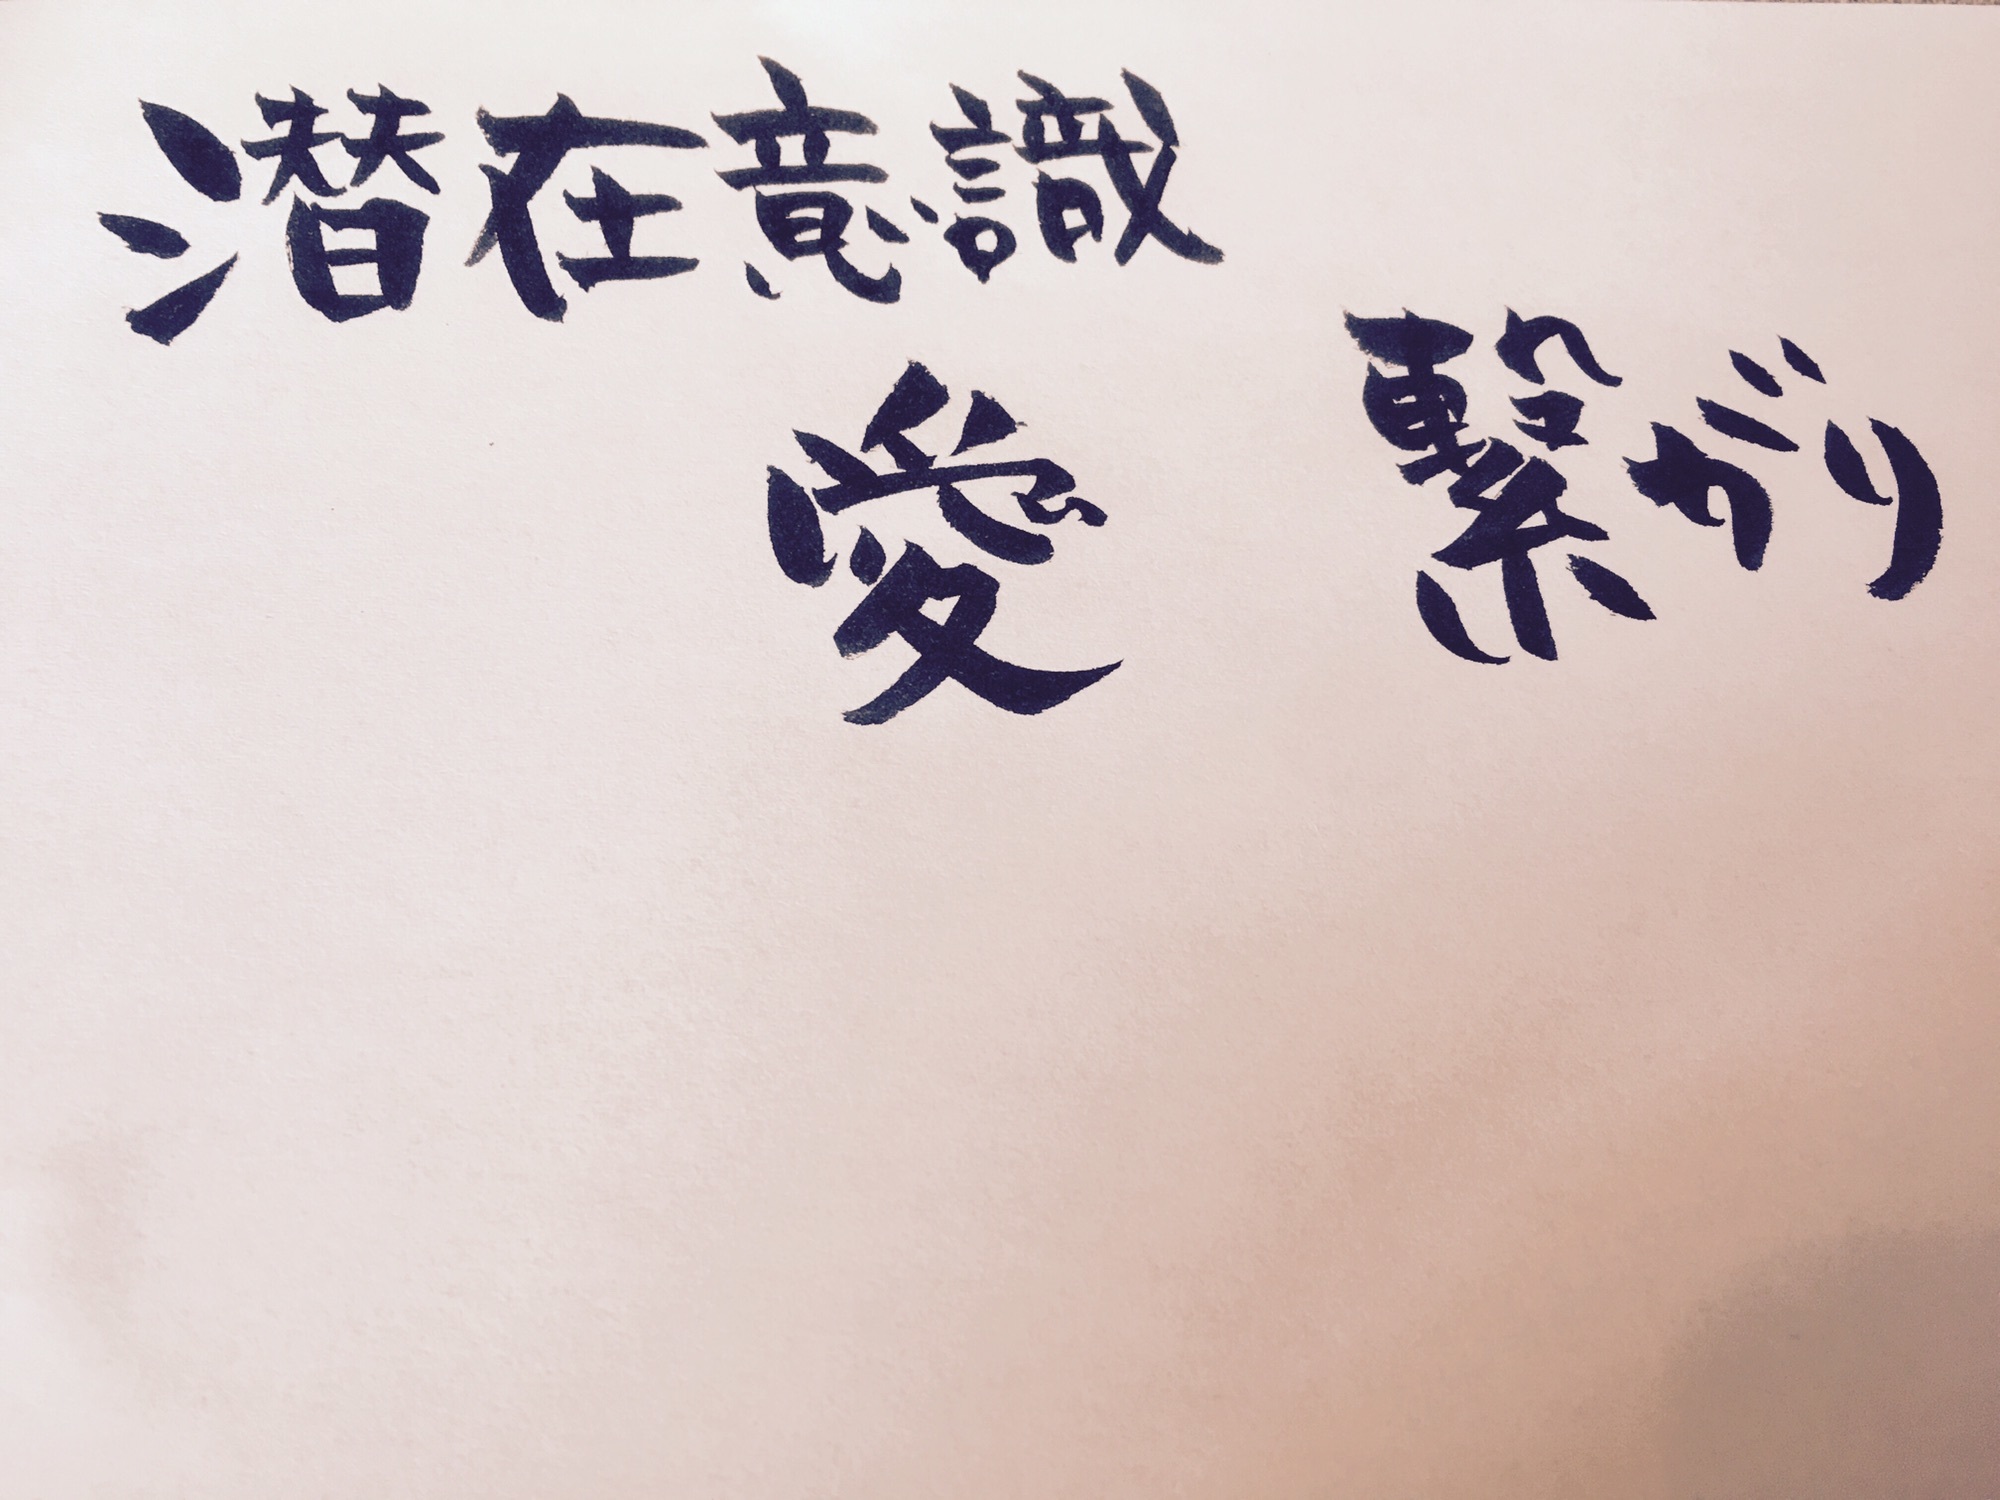 潜在意識
愛
繋がり